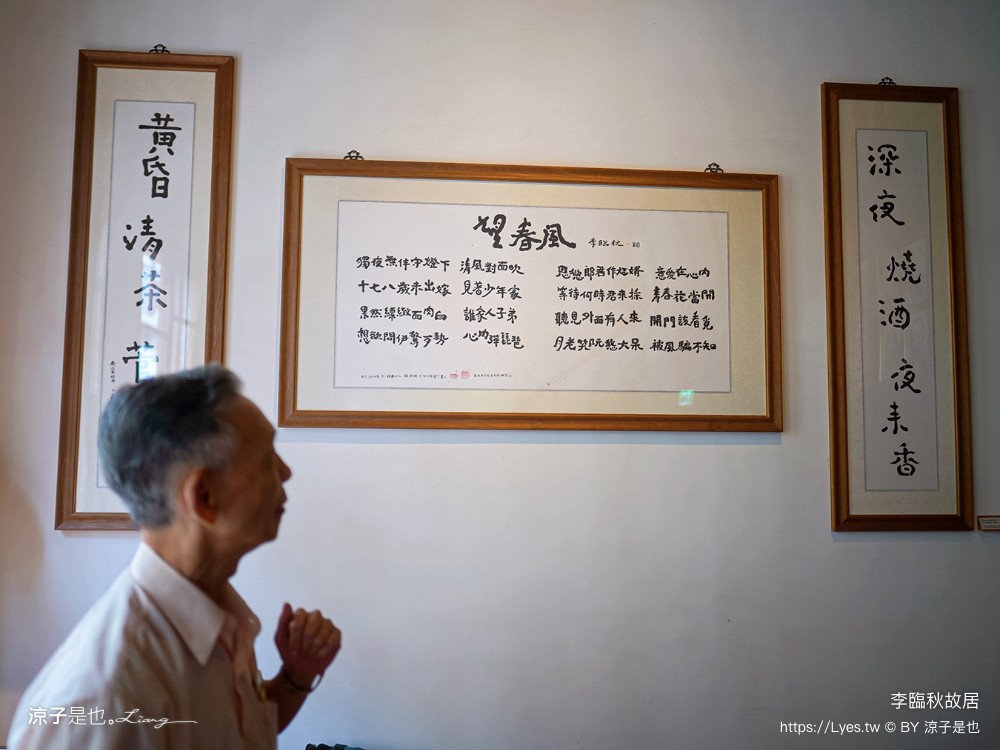 黃昏
清茶
望春風
李臨秋·詞
獨夜無伴守燈下 清風對面吹
十七八歲未出嫁 見著少年家
果然縹緻面肉白 誰家人子弟
想欲問伊驚歹勢 心內彈琵琶
思慾郎君作尪婿 意愛在心內
等待何時君來採 青春花當開
聽見外面有人來 開門該看覓
月老笑阮憨大呆 被風騙不知
深夜
燒酒
夜來香
涼子是也。Liang
李臨秋故居
https://Lyes.tw © BY 涼子是也